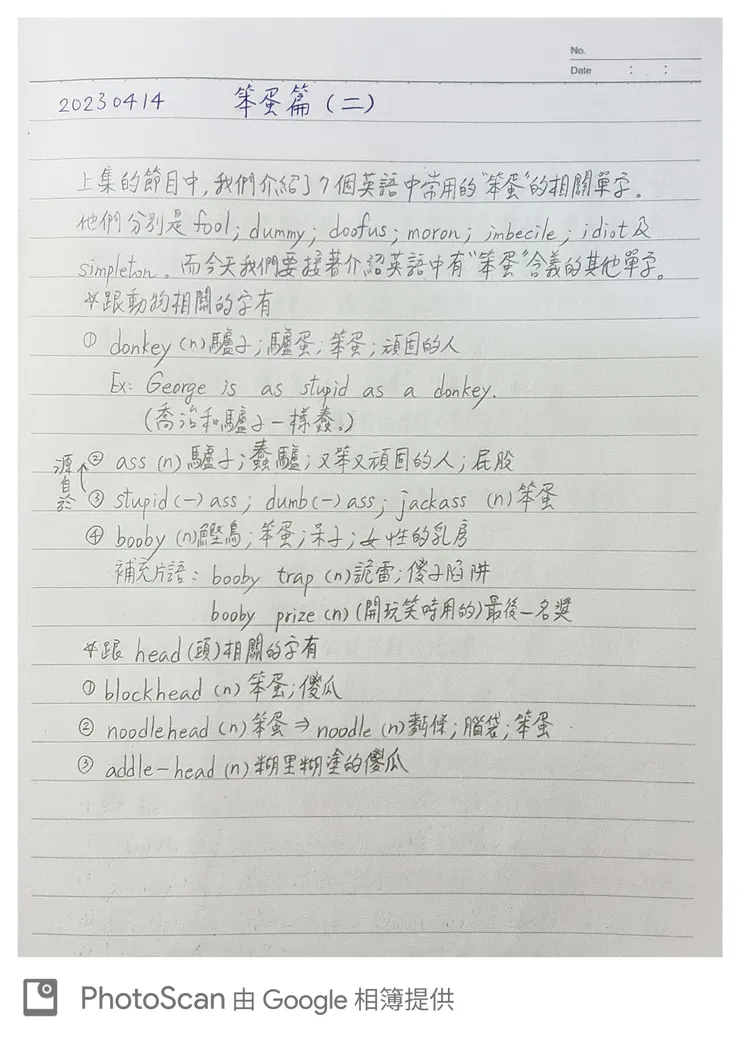 No.
Date : :
20230414 笨蛋篇(二)
上集的節目中,我們介紹了7個英語中常用的"笨蛋"的相關單字。
他們分別是 fool; dummy; doofus; moron; imbecile; idiot及
simpleton。而今天我們要接著介紹英語中有"笨蛋"含義的其他單字。
*跟動物相關的字有
① donkey (n)驢子;驢蛋;笨蛋;頑固的人
Ex: George is as stupid as a donkey.
(喬治和驢子一樣蠢。)
② ass (n)驢子;蠢驢;又笨又頑固的人;屁股
源自於↑
③ stupid(-)ass; dumb(-)ass; jackass (n)笨蛋
④ booby (n)鰹鳥;笨蛋;呆子;女性的乳房
補充片語: booby trap (n)詭雷;傻子陷阱
booby prize (n)(開玩笑時用的)最後一名獎
*跟head(頭)相關的字有
① blockhead (n)笨蛋;傻瓜
② noodlehead (n)笨蛋⇒noodle (n)麵條;腦袋;笨蛋
③ addle-head (n)糊里糊塗的傻瓜
PhotoScan 由 Google 相簿提供